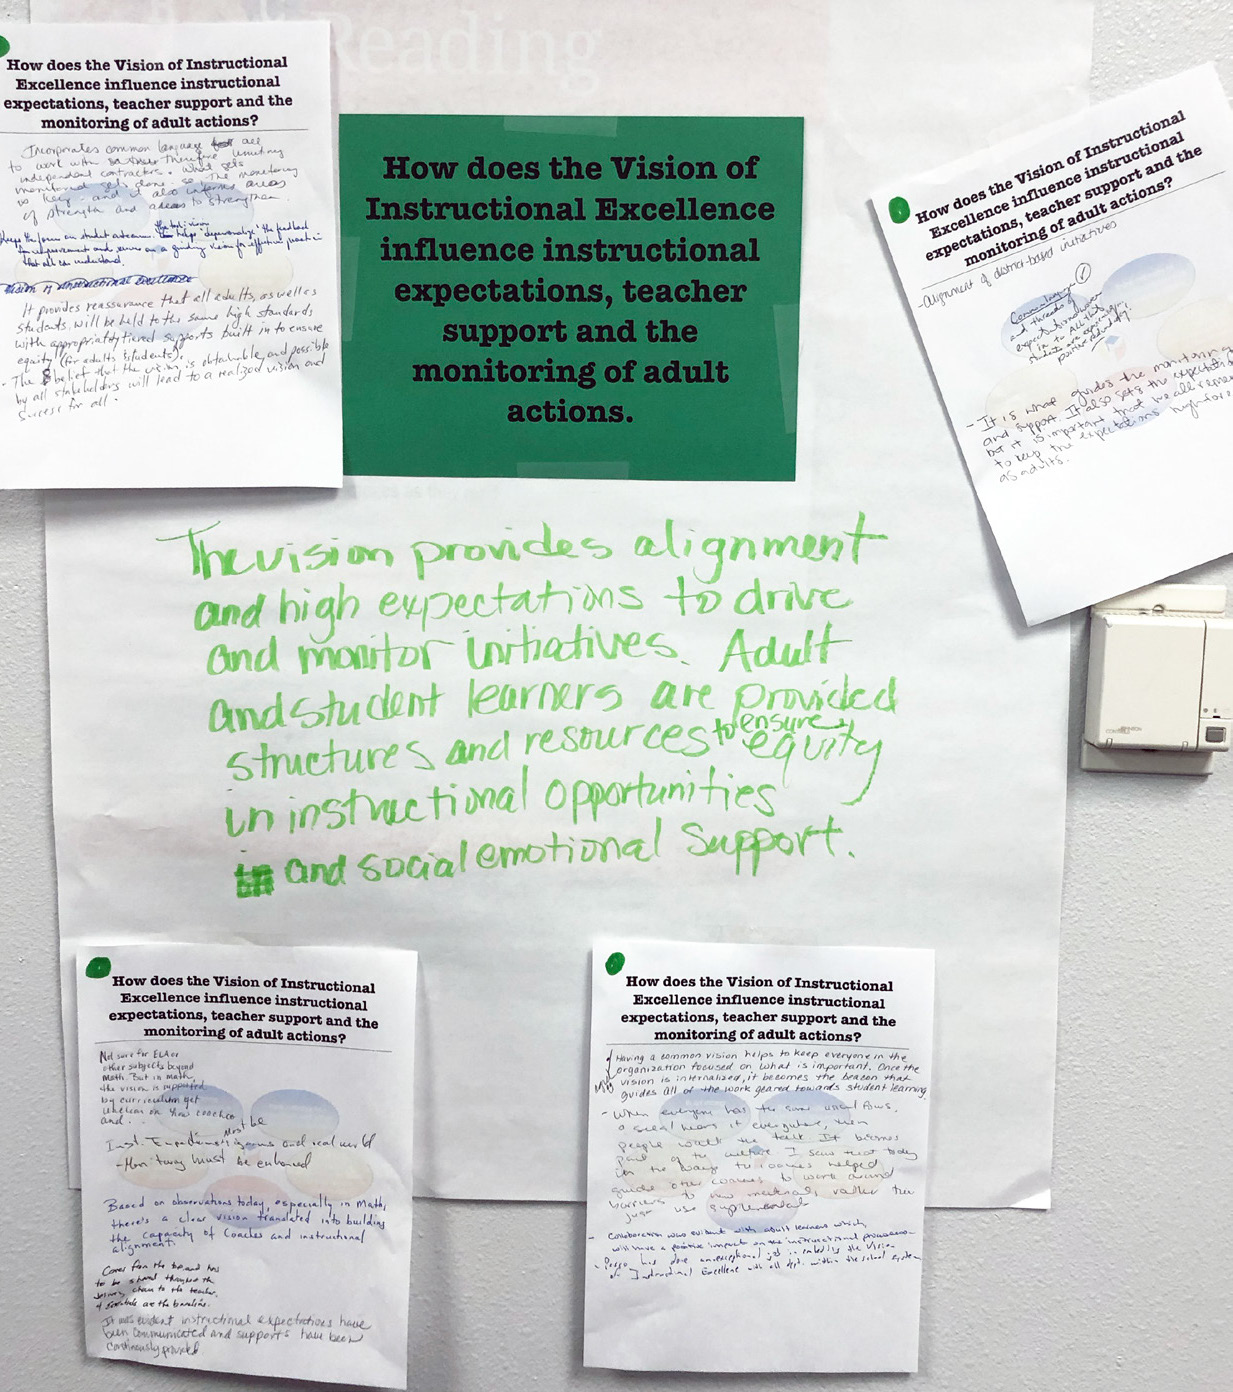 Reading
How does the Vision of Instructional
Excellence influence instructional
expectations, teacher support and the
monitoring of adult actions?
Incorporates common language all
to work with therefore limiting
independent contractors. What gets
monitored gets done. So the monitoring
is key and it also informs areas
of strength and areas to strengthen
keeps the focus on student outcomes. helps "depersonalize" the feedback
for improvement and serves as a guiding vision for effective practice
that all can understand.
Vision of instructional excellence
It provides reassurance that all adults, as well as
students, will be held to the same high standards
with appropriately tiered supports built in to ensure
equity (for adults & students).
- The belief that the vision is obtainable and possible
by all stakeholders will lead to a realized vision and
success for all.
How does the Vision of
Instructional Excellence
influence instructional
expectations, teacher
support and the
monitoring of adult
actions.
How does the Vision of Instructional
Excellence influence instructional
expectations, teacher support and the
monitoring of adult actions?
- Alignment of district-based initiatives
Common language
and threads of
in to All that
students are experiencing
- It is what guides the monitoring
and support. It also sets the expectation
but it is important that we all
to keep the expectations high for
as adults.
The vision provides alignment
and high expectations to drive
and monitor initiatives. Adult
and student learners are provided
structures and resources to ensure equity
in instructional opportunities
and social emotional support.
How does the Vision of Instructional
Excellence influence instructional
expectations, teacher support and the
monitoring of adult actions?
Not sure for ELA or
other subjects beyond
Math. But in math
the vision is supported
by curriculum yet
and..
Must be
rigorous and real world
- Monitoring must be enhanced
Based on observations today, especially in Math,
there's a clear vision translated into building
the capacity of coaches and instructional
alignment.
Comes from the top and has
to be shared throughout the
chain to the teacher.
are the baseline.
It was evident instructional expectations have
been communicated and supports have been
continuously provided
How does the Vision of Instructional
Excellence influence instructional
expectations, teacher support and the
monitoring of adult actions?
Having a common vision helps to keep everyone in the
organization focused on what is important. Once the
vision is internalized, it becomes the beacon that
guides all of the work geared towards student learning.
- When everyone has the same focus,
hears it everywhere, then
people walk the talk. It becomes
part of the culture. I saw that today
in the ways the coaches helped
guide other coaches to work around
barriers to new materials rather than
just use supplementals
- Collaboration was evident with adult learners which
will have a positive impact on the instructional
has done an exceptional job in the Vision
of Instructional Excellence with all dept. within the school system